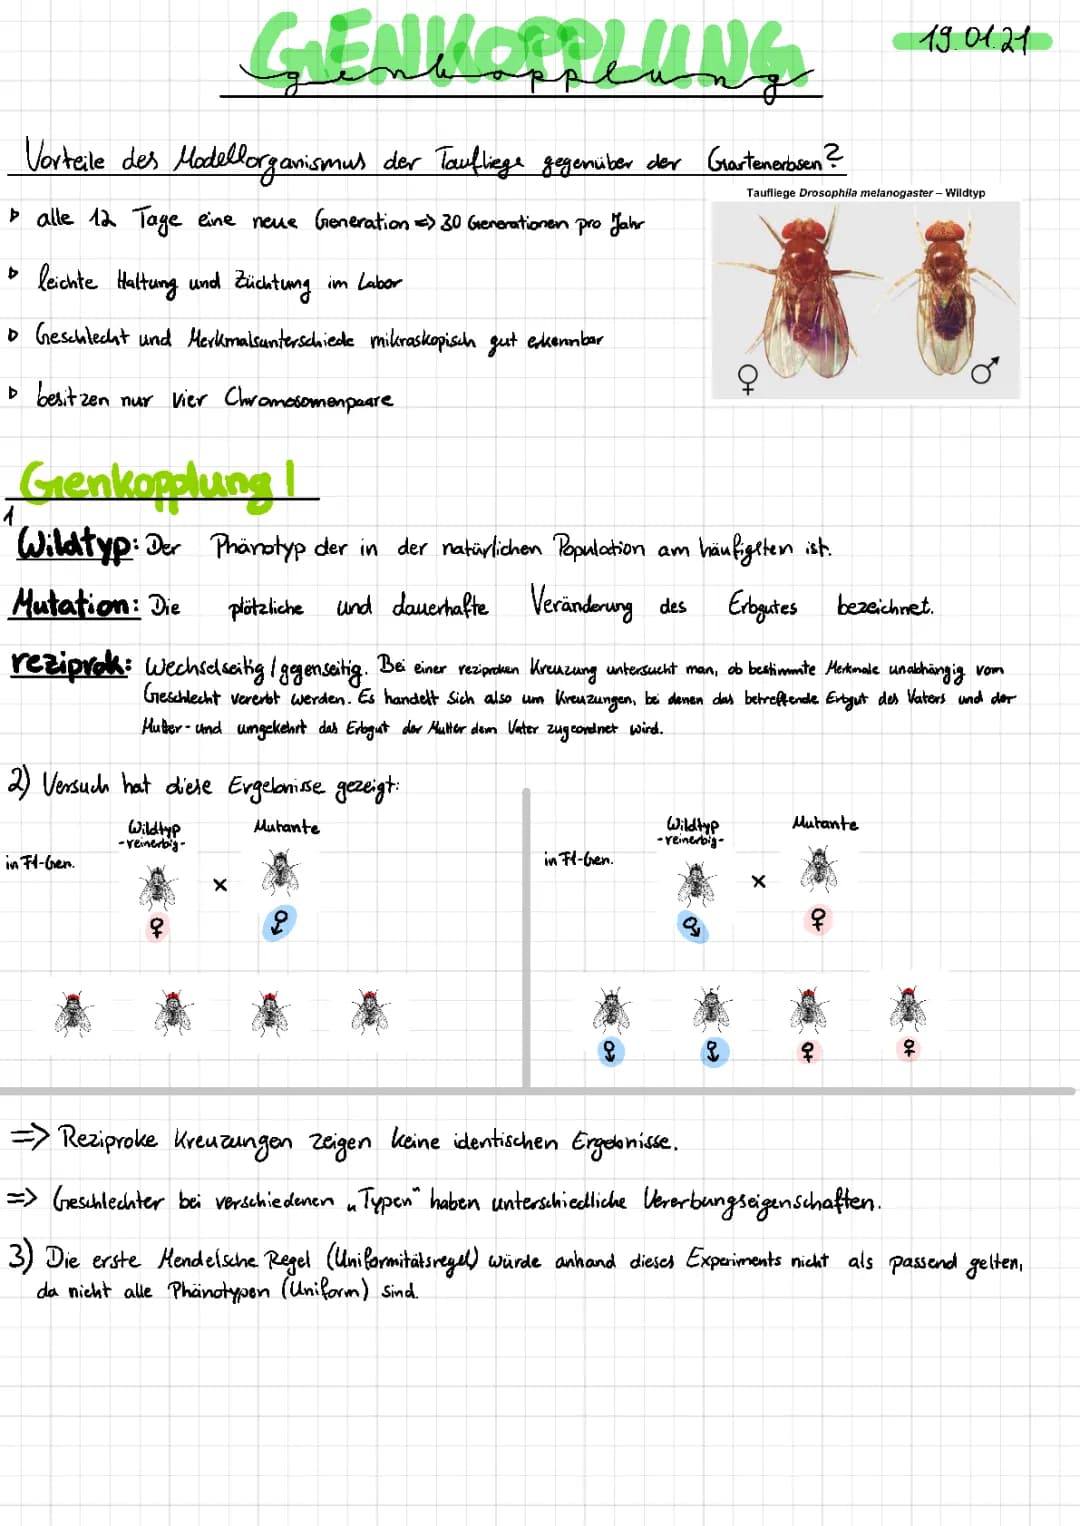 GENKOPPLUNG
genkopplung
19.01.21
Vorteile des Modellorganismus der Taufliege gegenüber der Gartenerbsen?
Taufliege Drosophila melanogaster – Wildtyp
▷ alle 12 Tage eine neue Generation => 30 Generationen pro Jahr
▷ leichte Haltung und Züchtung im Labor
▷ Geschlecht und Merkmalsunterschiede mikroskopisch gut erkennbar
▷ besitzen nur vier Chromosomenpaare
♀ ♂
Genkopplung I
1
Wildtyp: Der Phänotyp der in der natürlichen Population am häufigsten ist.
Mutation: Die plötzliche und dauerhafte Veränderung des Erbgutes bezeichnet.
reziprok: Wechselseitig / gegenseitig. Bei einer reziproken Kreuzung untersucht man, ob bestimmte Merkmale unabhängig vom
Geschlecht vererbt werden. Es handelt sich also um Kreuzungen, bei denen das betreffende Erbgut des Vaters und der
Mutter - und umgekehrt das Erbgut der Mutter dem Vater zugeordnet wird.
2) Versuch hat diese Ergebnisse gezeigt:
Wildtyp
-reinerbig-
Mutante
in F1-Gen.
x
♀ ♂
Wildtyp
-reinerbig-
Mutante
in F1-Gen.
x
♂ ♀
♂ ♂ ♀ ♀
=> Reziproke Kreuzungen zeigen keine identischen Ergebnisse.
=> Geschlechter bei verschiedenen „Typen“ haben unterschiedliche Vererbungseigenschaften.
3) Die erste Mendelsche Regel (Uniformitätsregel) würde anhand dieses Experiments nicht als passend gelten,
da nicht alle Phänotypen (Uniform) sind.